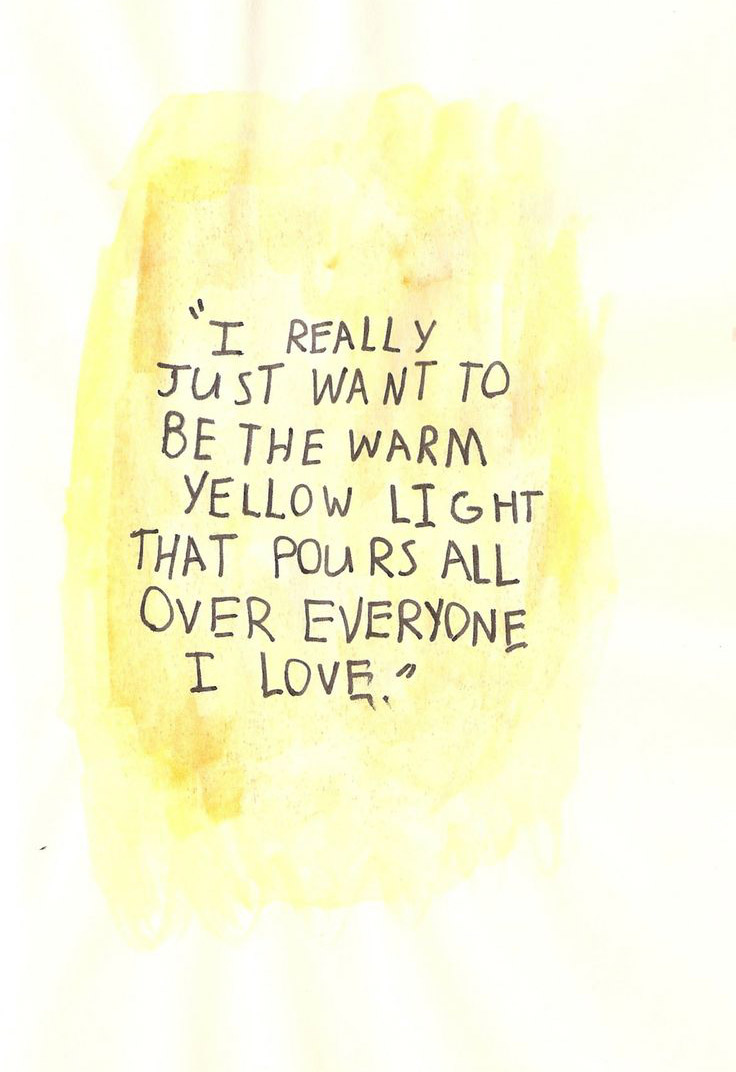 "I REALLY
JUST WANT TO
BE THE WARM
YELLOW LIGHT
THAT POURS ALL
OVER EVERYONE
I LOVE."